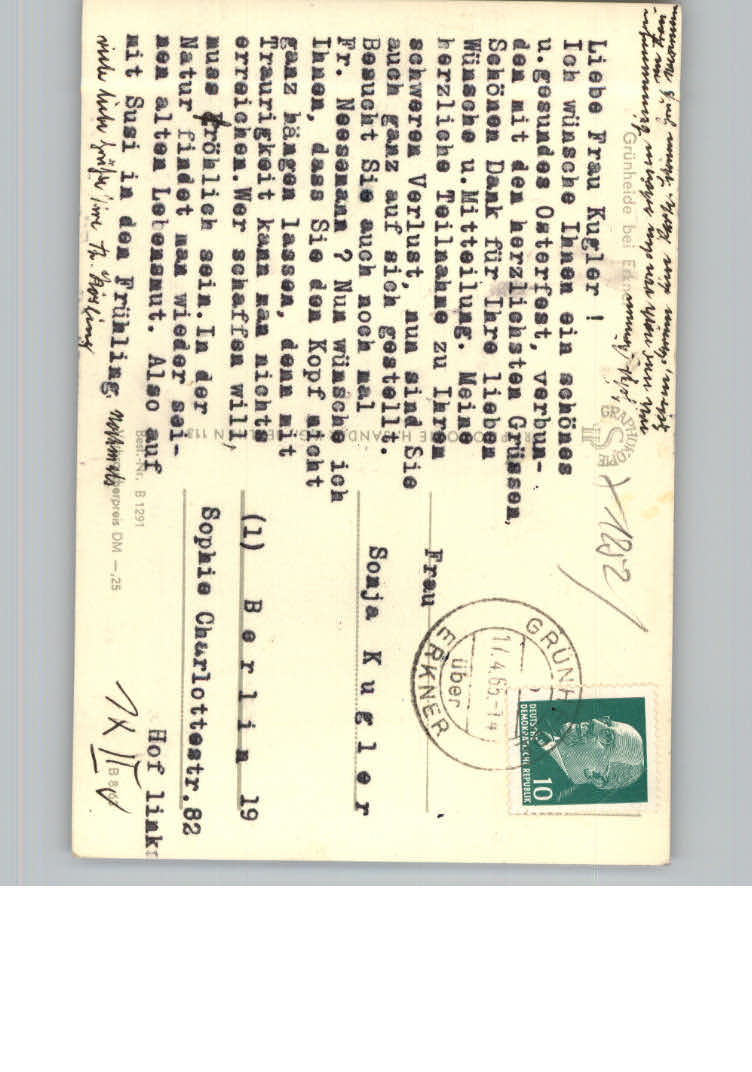 Grünheide bei Erkner
Liebe Frau Kugler !
Ich wünsche Ihnen ein schönes
u.gesundes Osterfest, verbun-
den mit den herzlichsten Grüssen,
Schönen Dank für Ihre lieben
Wünsche u.Mitteilung. Meine
herzliche Teilnahme zu Ihrem
schweren Verlust, nun sind Sie
auch ganz auf sich gestellt.
Besucht Sie auch noch mal
Fr. Neesemann ? Nun wünsche ich
Ihnen, dass Sie den Kopf nicht
ganz hängen lassen, denn mit
Traurigkeit kann man nichts
erreichen.Wer schaffen will,
muss fröhlich sein.In der
Natur findet man wieder sei-
nen alten Lebensmut. Also auf
mit Susi in den Frühling. nochmals
viele liebe Grüße Ihre
Best.-Nr. B 1291
DM -,25
1182
GRÜNH
ERKNER
über
17.4.65.-14
DEUTSCHE
DEMOKRATISCHE REPUBLIK
10
Frau
Sonja Kugler
(1) Berlin 19
Sophie Charlottestr.82
Hof links
IX
B 8/6